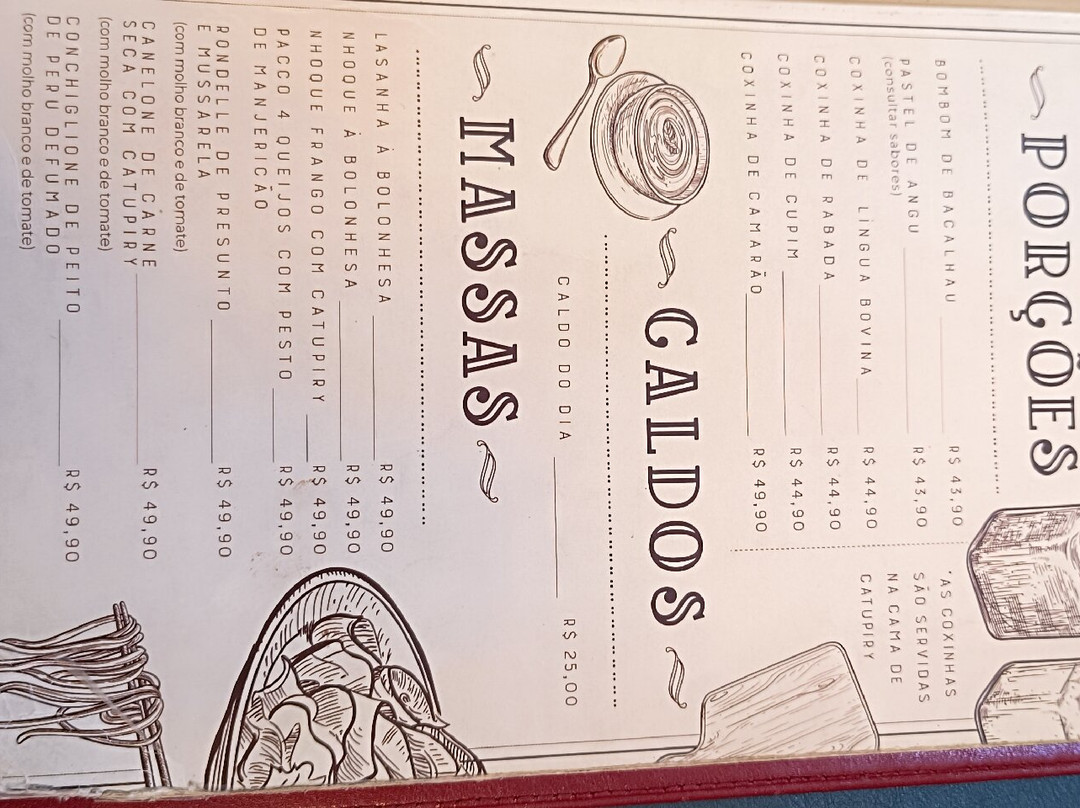 PORÇÕES
BOMBOM DE BACALHAU R$ 43,90
PASTEL DE ANGU R$ 43,90
(consultar sabores)
COXINHA DE LÍNGUA BOVINA R$ 44,90
COXINHA DE RABADA R$ 44,90
COXINHA DE CUPIM R$ 44,90
COXINHA DE CAMARÃO R$ 49,90
*AS COXINHAS
SÃO SERVIDAS
NA CAMA DE
CATUPIRY
CALDOS
CALDO DO DIA R$ 25,00
MASSAS
LASANHA À BOLONHESA R$ 49,90
NHOQUE À BOLONHESA R$ 49,90
NHOQUE FRANGO COM CATUPIRY R$ 49,90
PACCO 4 QUEIJOS COM PESTO R$ 49,90
DE MANJERICÃO
RONDELLE DE PRESUNTO R$ 49,90
E MUSSARELA
(com molho branco e de tomate)
CANELONE DE CARNE R$ 49,90
SECA COM CATUPIRY
(com molho branco e de tomate)
CONCHIGLIONE DE PEITO R$ 49,90
DE PERU DEFUMADO
(com molho branco e de tomate)